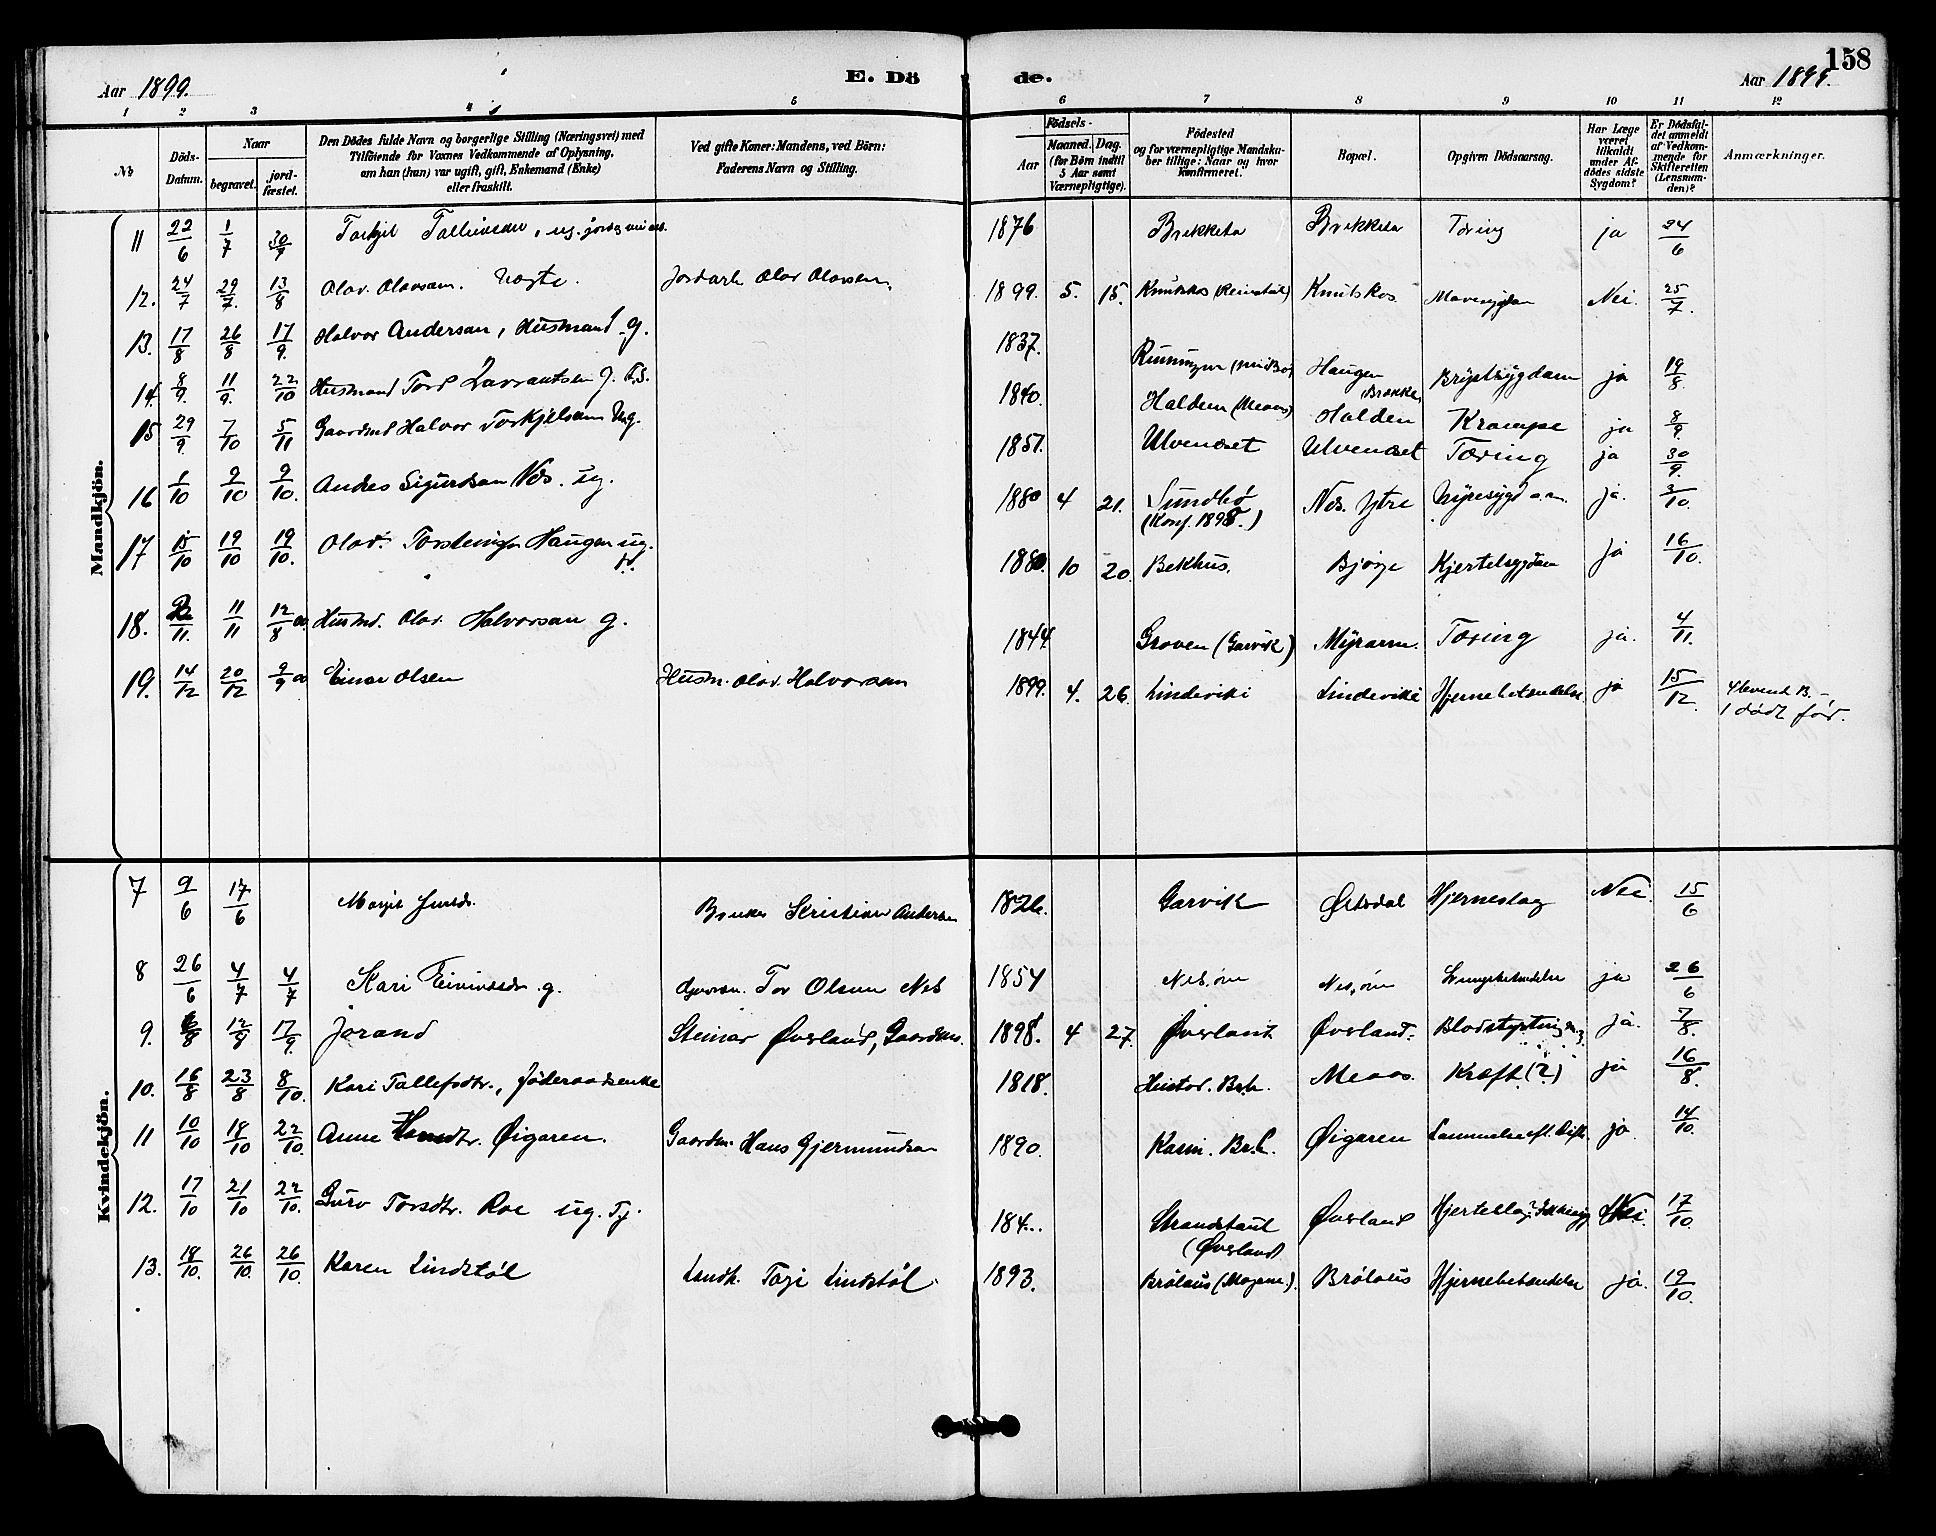 158
Aar 1899. E. Dö de. Aar 1899.
1 2 3 4 5 6 7 8 9 10 11 12
No
Döds-Datum.
Naar
begravet.
jord-fæstet.
Den Dödes fulde Navn og borgerlige Stilling (Næringsvei) med
Tilföiende for Voxnes Vedkommende af Oplysning,
om han (hun) var ugift, gift, Enkemand (Enke)
eller fraskilt.
Ved gifte Koner: Mandens, ved Börn:
Faderens Navn og Stilling.
Födsels-
Aar
Maaned. Dag.
(for Börn indtil
5 Aar samt
Værnepligtige).
Födested
og for værnepligtige Mandska-
ber tillige: Naar og hvor
konfirmeret.
Bopæl.
Opgiven Dödsaarsag.
Har Læge
været
tilkaldt
under Af-
dödes sidste
Sygdom?
Er Dödsfal-
det anmeldt
af Vedkom-
mende for
Skifteretten
(Lensman-
den)?
Anmærkninger.
Mandkjön.
11 22/6 1/7 30/7 Torkjil ug. 1876 Brekketa Tæring ja 24/6
12. 24/7 29/7. 13/8 Olav. Olavsøn. Jordarb. Olav Olavsen. 1899. 5. 15. Knutskos Mavesygdom Nei 25/7.
13. 17/8 26/8 17/9. Halvor Anderson, Husmand g. 1837. Haugen Brokke Brystsygdom ja 19/8.
14. 8/9. 11/9. 22/10 Husmand Tord g. 1840. Halden (Meaas) Halden Krampe ja 8/9.
15 29/9 7/10 5/11 Gaardmd Halvor Torkjelson Ug. 1857. Ulvenæset Ulvenæset Tæring ja 30/9.
16 1/10 9/10 9/10. Andres Sigurdson Nes. ug. 1880 4 21. Sundbø (Konf. 1898.) Nes. Ytre Nyresygdom ja. 3/10
17 15/10 19/10 19/10. Olav. Haugen ug. 1880. 10 20. Bekhus. Bjørge Kjertelsygdom ja 16/10.
18. 2/11. 11/11 12/8 00. Husmd. Olav. Halvorson g. 1844. Groven (Garvik) Myraann. Tæring ja. 4/11.
19. 14/12 20/12 9/9 00 Einar Olsen Husm. Olav. Halvorson 1899. 4. 26. Lindeviki Lindeviki Hjernebetændelse ja 15/12. 4 levende B. -
1 dødt før.
Kvindekjön.
7 9/6 17/6 Margit Bruker Kristian Andersen 1826. Garvik Ørtsdal Hjerneslag Nei. 15/6
8 26/6 4/7 4/7 Kari Eivindsdr. g. Tov Olsen Nes 1854 Nes, øvre Nes, øvre Lungebetændelse ja 26/6
9. 6/8 12/8 17/9. Jorand Steinar Øverland, Gaardm. 1898. 4 27. Øverland Øverland. Blodstyrtning ja. 7/8.
10. 16/8 23/8 8/10. Kari Tallefsdtr., Føderaadsenke 1818. Meaas. Kræft (?) ja 16/8.
11 10/10 18/10 22/10. Anne Hansdtr. Øigaren. Gaardm. Hans Gjermundson 1890. Øigaren ja 14/10.
12. 17/10 21/10 22/10. Guro Torsdtr. Roe ug. Tj. 184... Strandstaul (Øverland) Øverland Hjerteslag. Nei. 17/10.
13. 18/10. 26/10. 26/10. Karen Lindstøl Landh. Tarje Lindstøl. 1893. Brølaus (Mogane.) Brølaus Hjernebetændelse ja. 19/10.